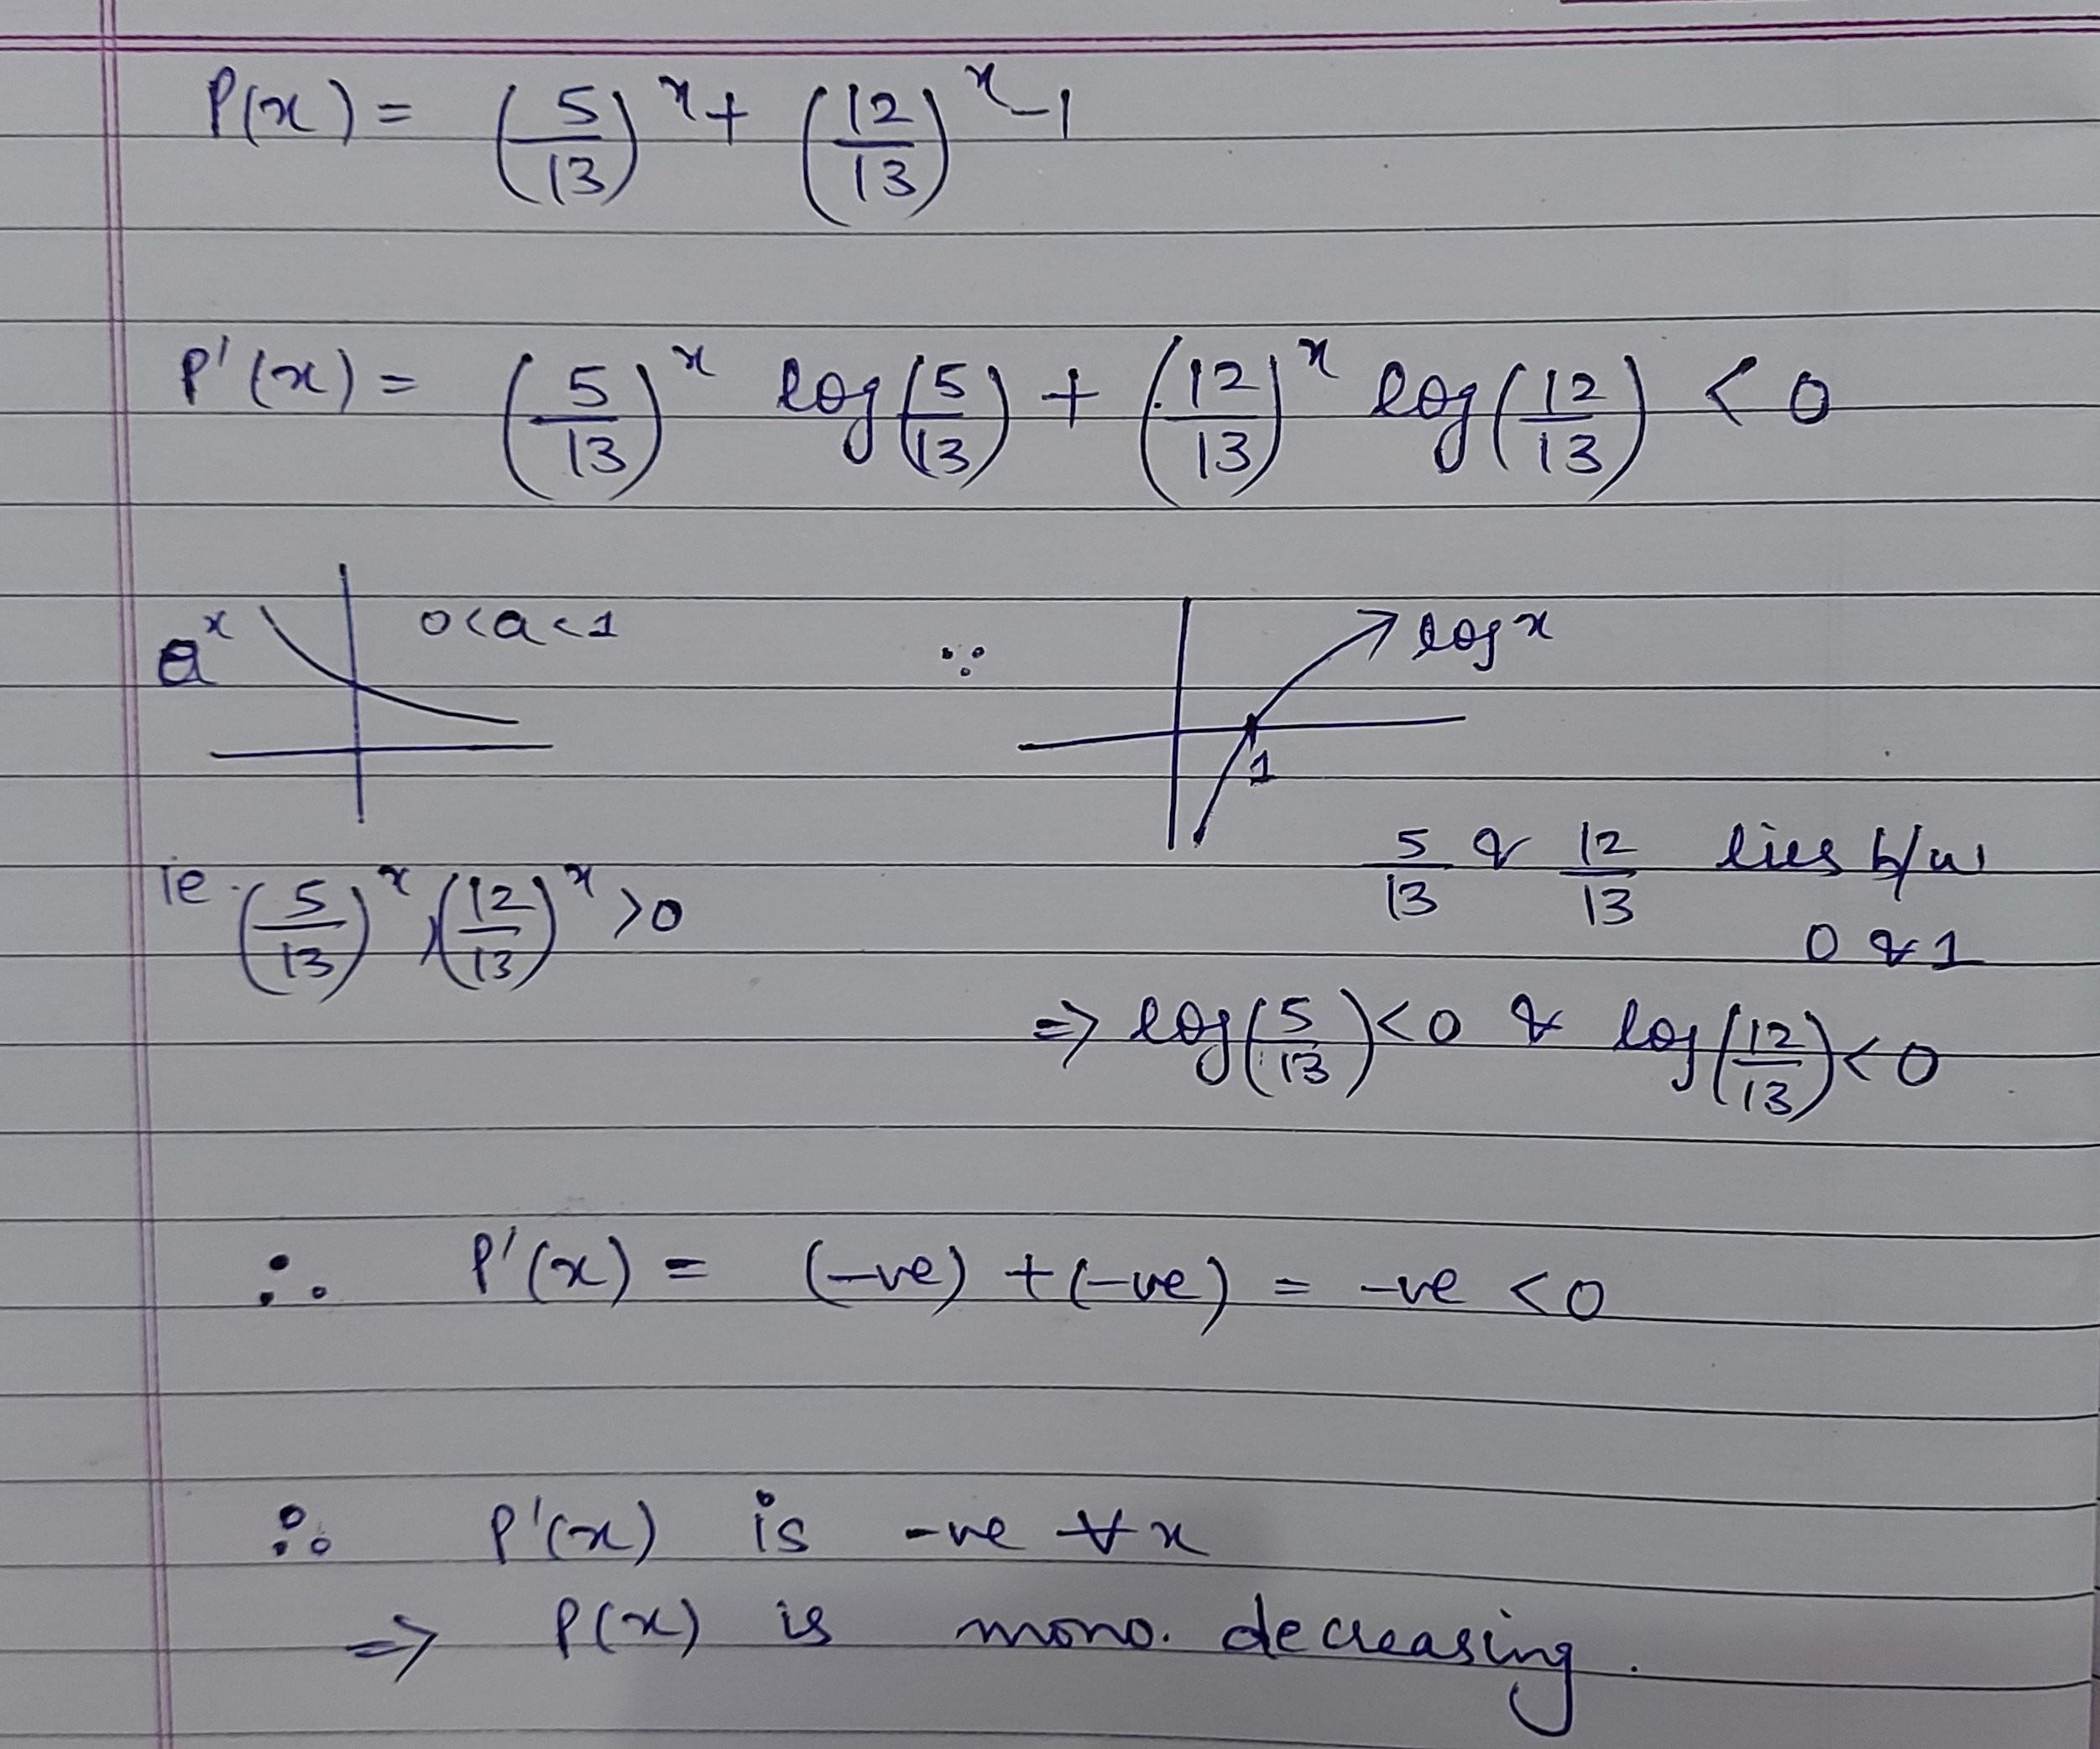 P(x) = (5/13)^x + (12/13)^x - 1
P'(x) = (5/13)^x log(5/13) + (12/13)^x log(12/13) < 0
a^x 0<a<1
∵ log x
1
5/13 & 12/13 lies b/w
0 & 1
ie (5/13)^x, (12/13)^x > 0
=> log(5/13) < 0 & log(12/13) < 0
∴ P'(x) = (-ve) + (-ve) = -ve < 0
∴ P'(x) is -ve ∀ x
=> P(x) is mono. decreasing.